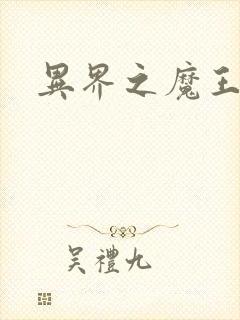 異界之魔王
吳禮九